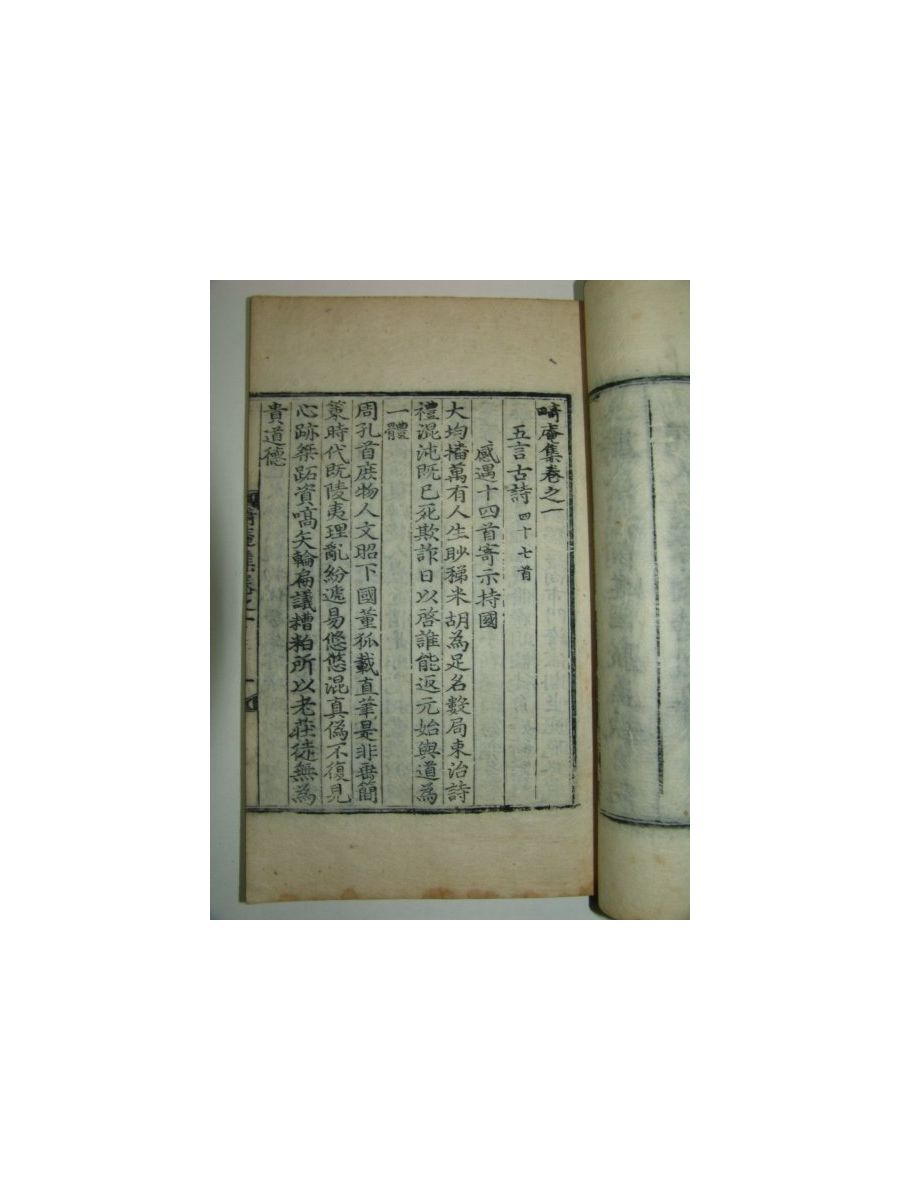 畸庵集卷之一
五言古詩 四十七首
感遇十四首寄示持國
大均播萬有人生眇稊米胡為足名數局束治詩
禮混沌既已死欺詐日以啓誰能返元始與道為
一體
周孔首庶物人文昭下國董狐載直筆是非垂簡
策時代既陵夷理亂紛遞易悠悠混真僞不復見
心跡桀跖資嚆矢輪扁議糟粕所以老莊徒無為
貴道德
畸庵集卷之一 一